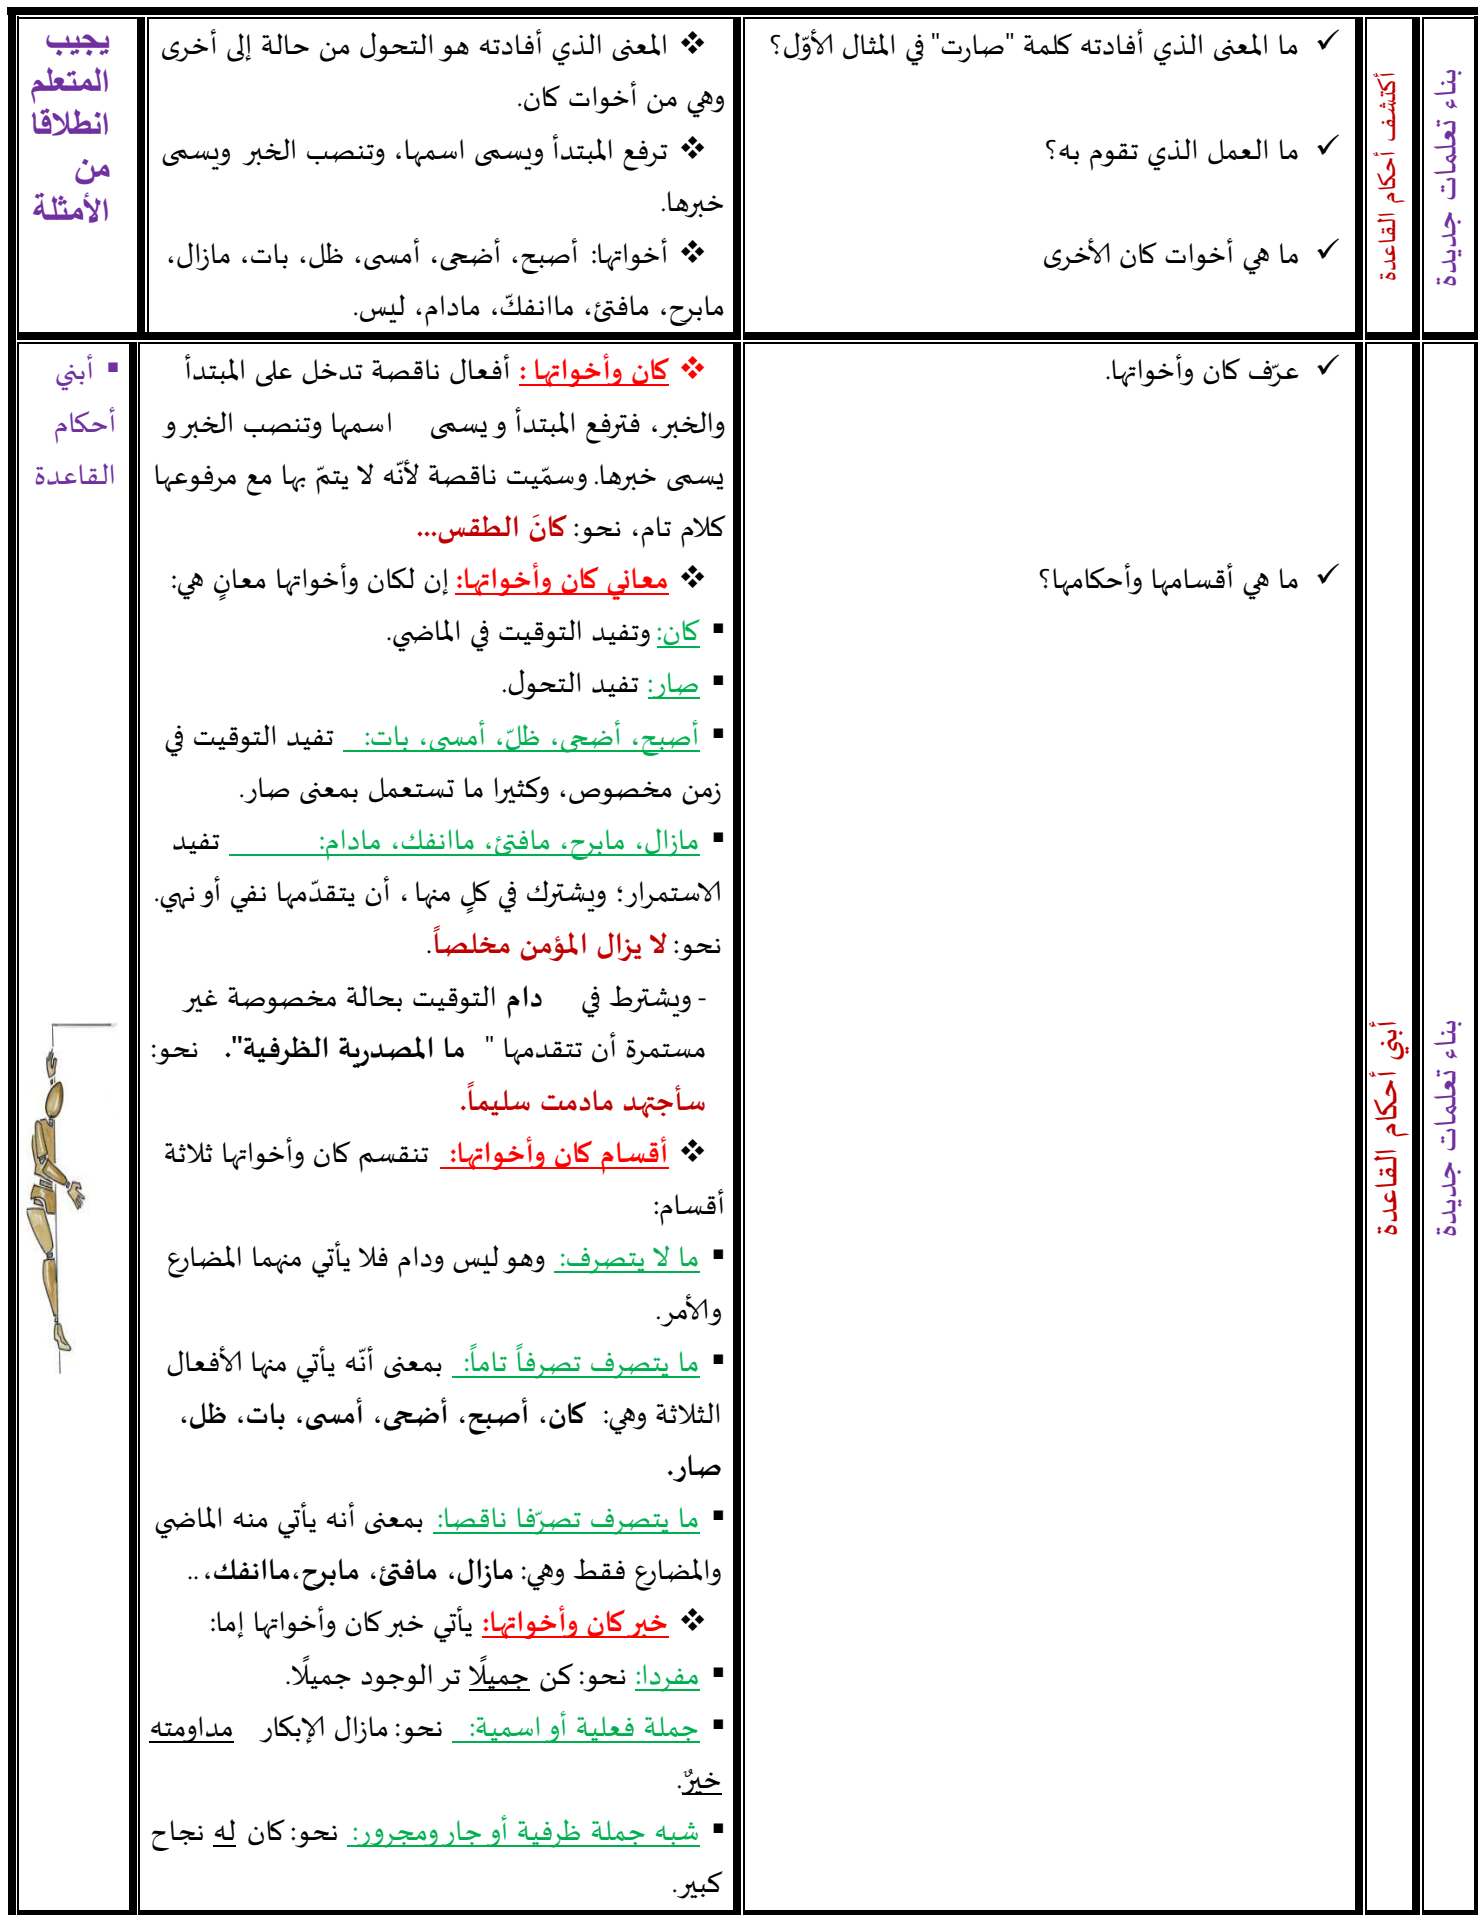 بناء تعلمات جديدة
أكتشف أحكام القاعدة
✓ ما المعنى الذي أفادته كلمة "صارت" في المثال الأوّل؟
✓ ما العمل الذي تقوم به؟
✓ ما هي أخوات كان الأخرى
❖ المعنى الذي أفادته هو التحول من حالة إلى أخرى
وهي من أخوات كان.
❖ ترفع المبتدأ ويسمى اسمها، وتنصب الخبر ويسمى
خبرها.
❖ أخواتها: أصبح، أضحى، أمسى، ظل، بات، مازال،
مابرح، مافتئ، ماانفكّ، مادام، ليس.
يجيب
المتعلم
انطلاقا
من
الأمثلة
بناء تعلمات جديدة
أبني أحكام القاعدة
✓ عرّف كان وأخواتها.
✓ ما هي أقسامها وأحكامها؟
❖ كان وأخواتها : أفعال ناقصة تدخل على المبتدأ
والخبر، فترفع المبتدأ و يسمى اسمها وتنصب الخبر و
يسمى خبرها. وسمّيت ناقصة لأنّه لا يتمّ بها مع مرفوعها
كلام تام، نحو: كانَ الطقس...
❖ معاني كان وأخواتها: إن لكان وأخواتها معانٍ هي:
▪ كان: وتفيد التوقيت في الماضي.
▪ صار: تفيد التحول.
▪ أصبح، أضحى، ظلّ، أمسى، بات: تفيد التوقيت في
زمن مخصوص، وكثيرا ما تستعمل بمعنى صار.
▪ مازال، مابرح، مافتئ، ماانفك، مادام: تفيد
الاستمرار؛ ويشترك في كلٍ منها ، أن يتقدّمها نفي أو نهي.
نحو: لا يزال المؤمن مخلصاً.
- ويشترط في دام التوقيت بحالة مخصوصة غير
مستمرة أن تتقدمها " ما المصدرية الظرفية". نحو:
سأجتهد مادمت سليماً.
❖ أقسام كان وأخواتها: تنقسم كان وأخواتها ثلاثة
أقسام:
▪ ما لا يتصرف: وهو ليس ودام فلا يأتي منهما المضارع
والأمر.
▪ ما يتصرف تصرفاً تاماً: بمعنى أنّه يأتي منها الأفعال
الثلاثة وهي: كان، أصبح، أضحى، أمسى، بات، ظل،
صار.
▪ ما يتصرف تصرّفا ناقصا: بمعنى أنه يأتي منه الماضي
والمضارع فقط وهي: مازال، مافتئ، مابرح،ماانفك، ..
❖ خبر كان وأخواتها: يأتي خبر كان وأخواتها إما:
▪ مفردا: نحو: كن جميلًا تر الوجود جميلًا.
▪ جملة فعلية أو اسمية: نحو: مازال الإبكار مداومته
خيرٌ.
▪ شبه جملة ظرفية أو جار ومجرور: نحو: كان له نجاح
كبير.
▪ أبني
أحكام
القاعدة